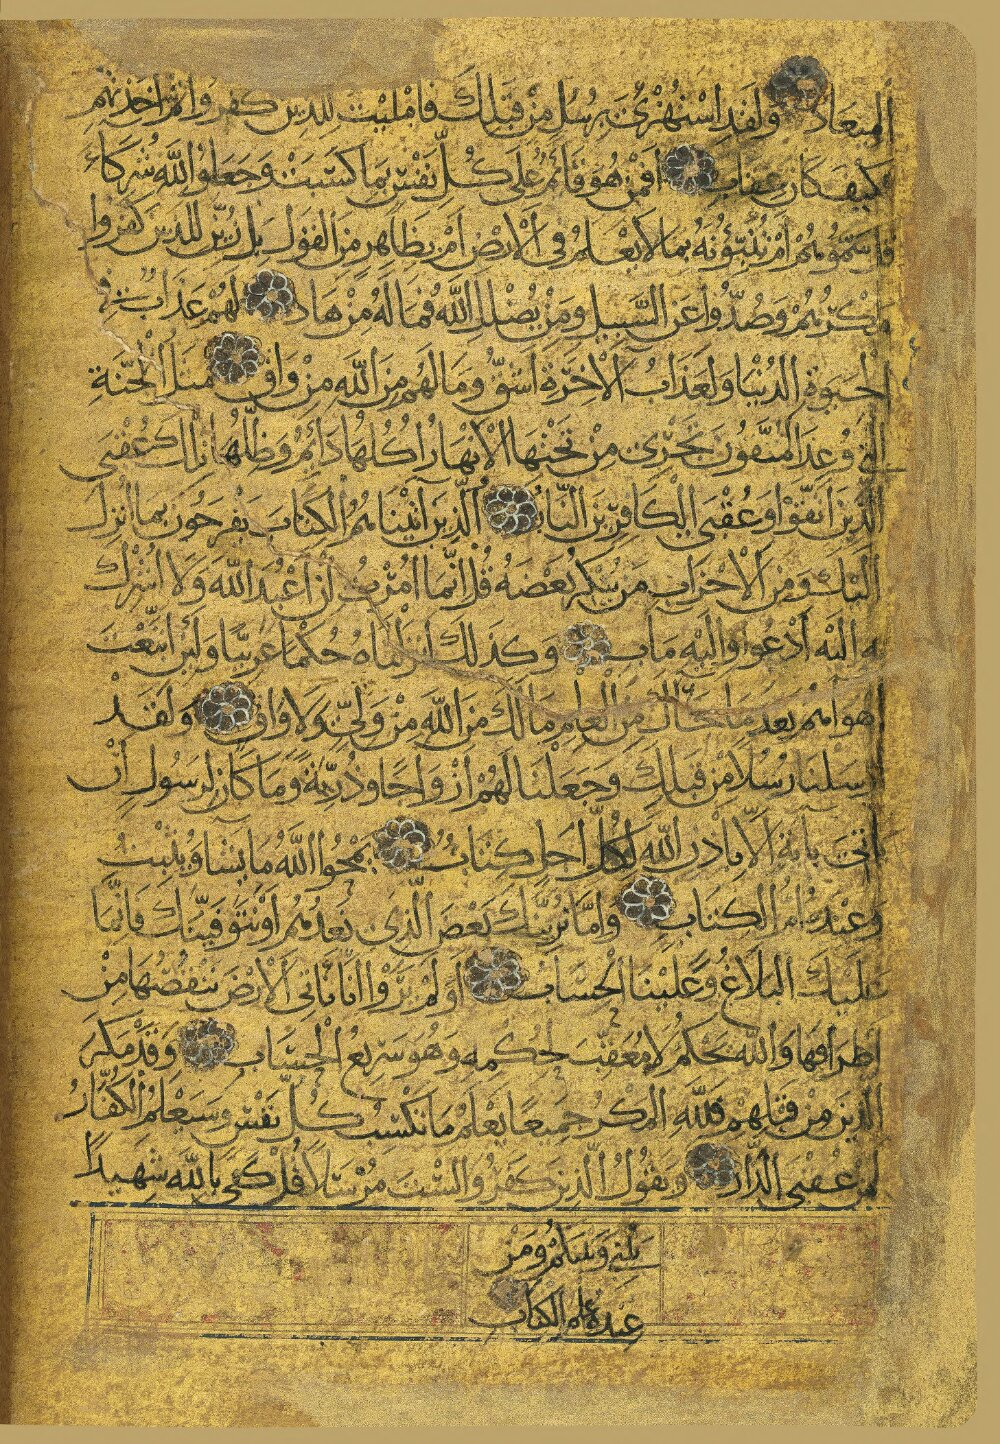 الميعاد ولقد استهزئ برسل من قبلك فامليت للذين كفروا ثم اخذتهم
فكيف كان عقاب افمن هو قائم على كل نفس بما كسبت وجعلوا لله شركاء
قل سموهم ام تنبؤنه بما لا يعلم في الارض ام بظاهر من القول بل زين للذين كفروا
مكرهم وصدوا عن السبيل ومن يضلل الله فما له من هاد لهم عذاب في
الحيوة الدنيا ولعذاب الاخرة اشق وما لهم من الله من واق مثل الجنة
التي وعد المتقون تجري من تحتها الانهار اكلها دائم وظلها تلك عقبى
الذين اتقوا وعقبى الكافرين النار الذين اتيناهم الكتاب يفرحون بما انزل
اليك ومن الاحزاب من ينكر بعضه قل انما امرت ان اعبد الله ولا اشرك
به اليه ادعوا واليه ماب وكذلك انزلناه حكما عربيا ولئن اتبعت
اهواءهم بعد ما جاءك من العلم مالك من الله من ولي ولا واق ولقد
ارسلنا رسلا من قبلك وجعلنا لهم ازواجا وذرية وما كان لرسول ان
ياتي باية الا باذن الله لكل اجل كتاب يمحوا الله ما يشاء ويثبت
وعنده ام الكتاب واما نرينك بعض الذي نعدهم او نتوفينك فانما
عليك البلاغ وعلينا الحساب اولم يروا انا ناتي الارض ننقصها من
اطرافها والله يحكم لا معقب لحكمه وهو سريع الحساب وقد مكر
الذين من قبلهم فلله المكر جميعا يعلم ما تكسب كل نفس وسيعلم الكفار
لمن عقبى الدار ويقول الذين كفروا لست مرسلا قل كفى بالله شهيدا
بيني وبينكم ومن
عنده علم الكتاب